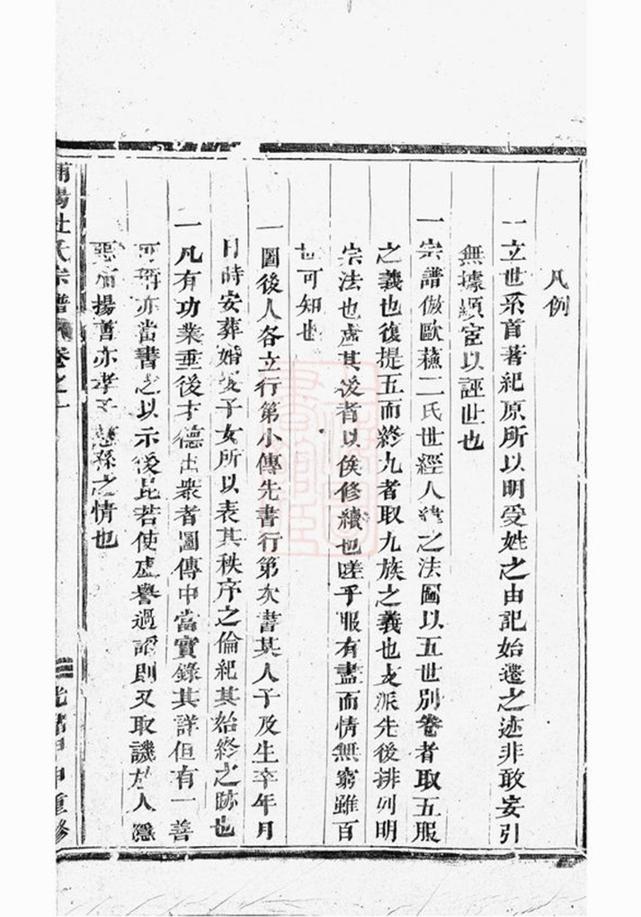 凡例
一立世系首著紀原所以明受姓之由記始遷之迹非敢妄引
無據顯宦以誣世也
一宗譜倣歐蘇二氏世經人緯之法圖以五世別卷者取五服
之義也復提五而終九者取九族之義也支派先後排列明
宗法也虛其後者以俟修續也嗟乎服有盡而情無窮雖百
世可知也
一圖後人各立行第小傳先書行第次書某人子及生卒年月
日時安葬婚娶子女所以表其秩序之倫紀其始終之跡也
一凡有功業垂後才德出衆者圖傳中當實錄其詳但有一善
可稱亦當書之以示後昆若使虛譽過謟則又取譏於人隱
惡而揚善亦孝子慈孫之情也
浦陽杜氏宗譜 卷之一
光緒甲申重修